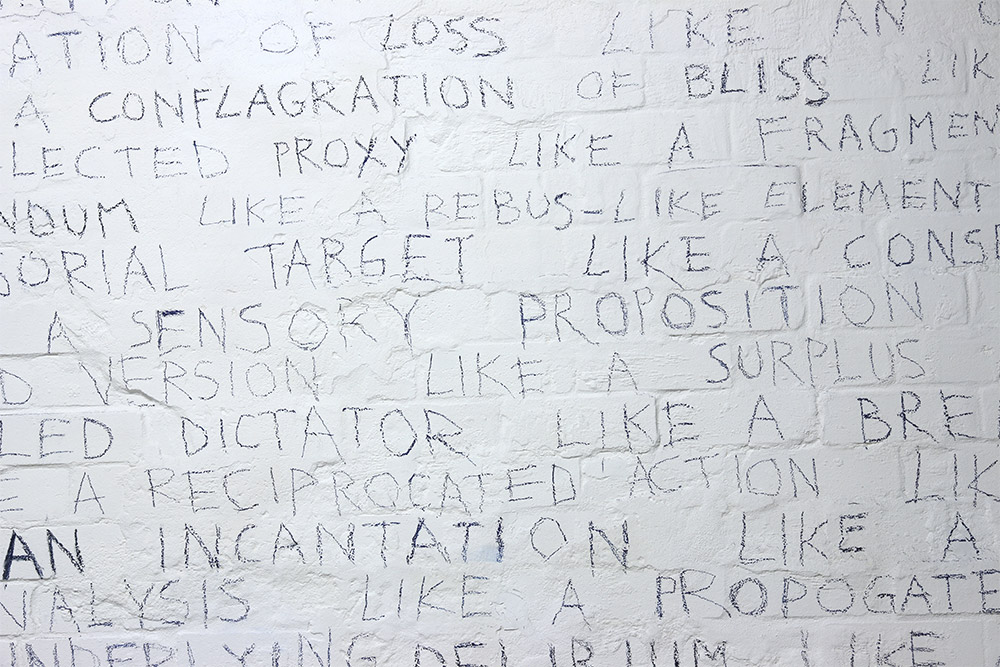 ATION OF LOSS LIKE AN
A CONFLAGRATION OF BLISS LIK
LECTED PROXY LIKE A FRAGMEN
NDUM LIKE A REBUS-LIKE ELEMENT
SORIAL TARGET LIKE A CONS
A SENSORY PROPOSITION
D VERSION LIKE A SURPLUS
LED DICTATOR LIKE A BRE
E A RECIPROCATED ACTION LIK
AN INCANTATION LIKE A
NALYSIS LIKE A PROPOGATE
UNDERLYING DELIRIUM LIKE